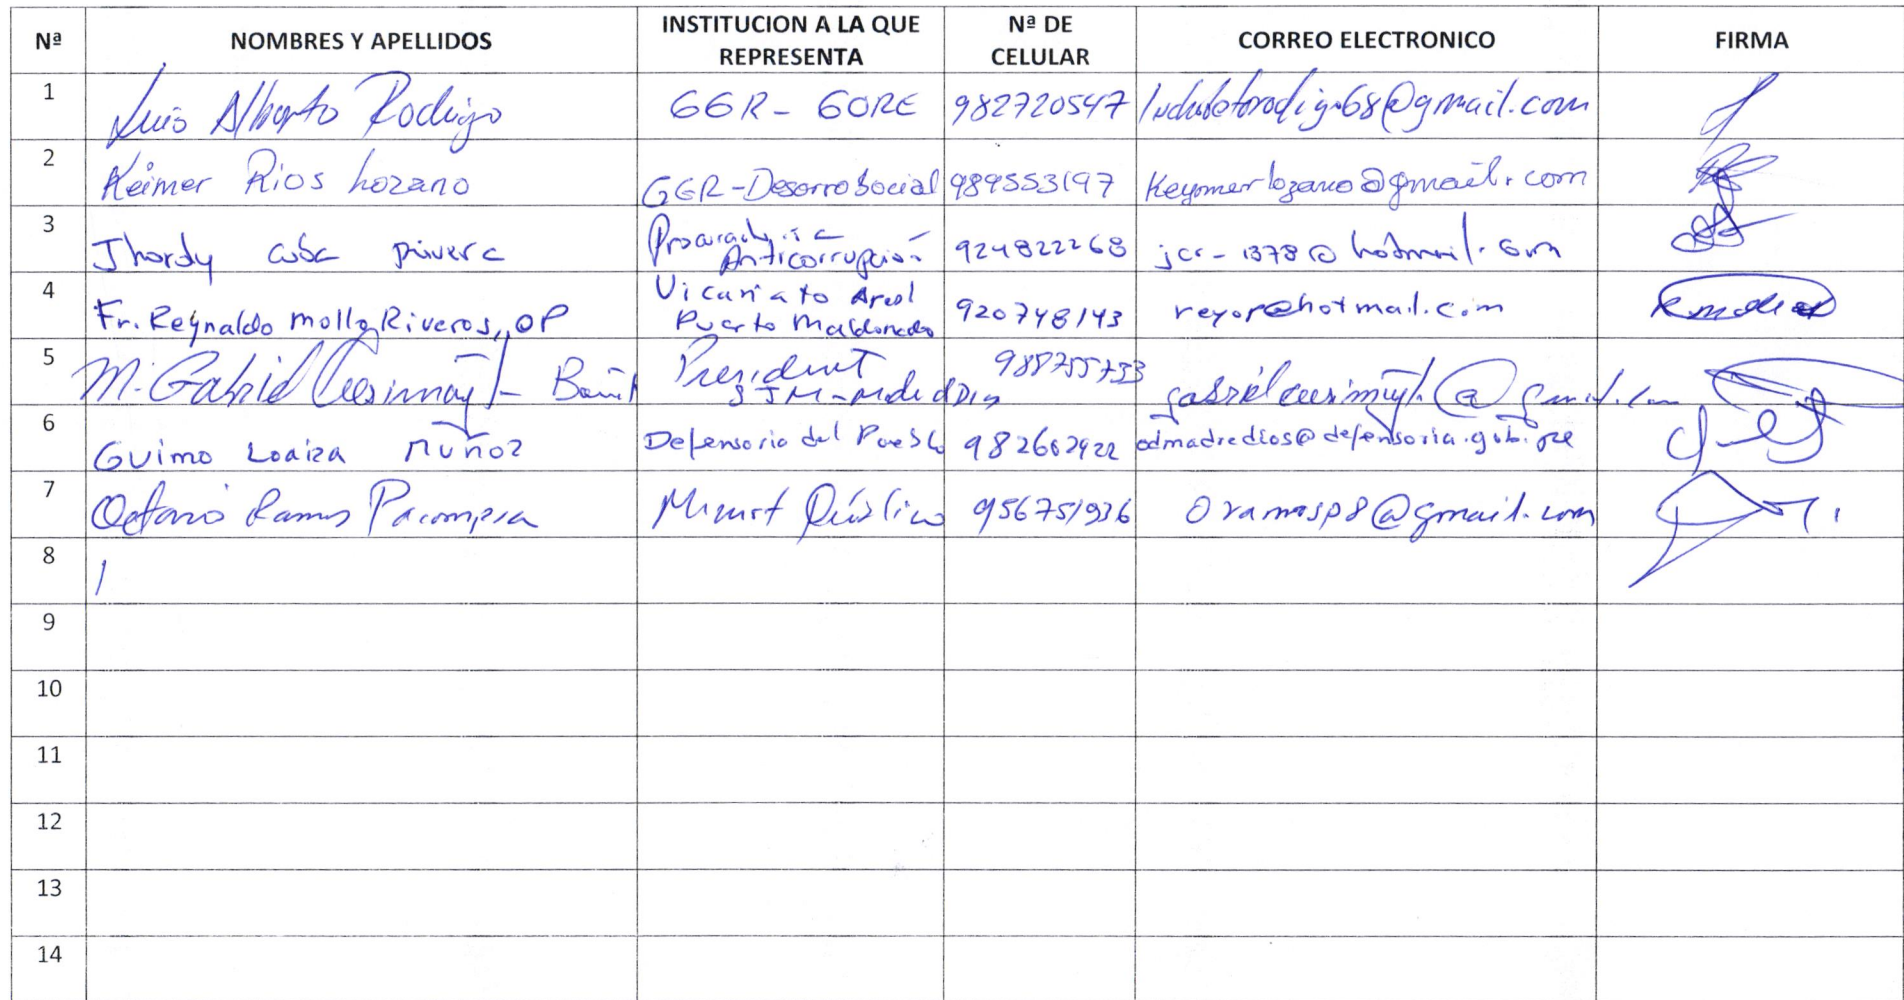 Nª NOMBRES Y APELLIDOS INSTITUCION A LA QUE REPRESENTA Nª DE CELULAR CORREO ELECTRONICO FIRMA
1 Luis Alberto Rodrigo GGR - GORE 982720547
2 Keimer Rios Lozano GGR - Desarro Social 989553197 Keymerlozano@gmail.com
3 Jhordy cuba rivera Procuraduria Anticorrupción 924822268 jcr-1378@hotmail.com
4 Fr. Reynaldo Mollo Riveros, OP Vicariato Apcol Puerto Maldonado 920748143 reyop@hotmail.com
5 M. Gabriel President 988755733
6 Guimo Loaiza Muñoz Defensoria del Pueblo 982602922 odmadredios@defensoria.gob.pe
7 Octavio Ramos Pacompia Minist Público 956751936 oramosp8@gmail.com
8
9
10
11
12
13
14